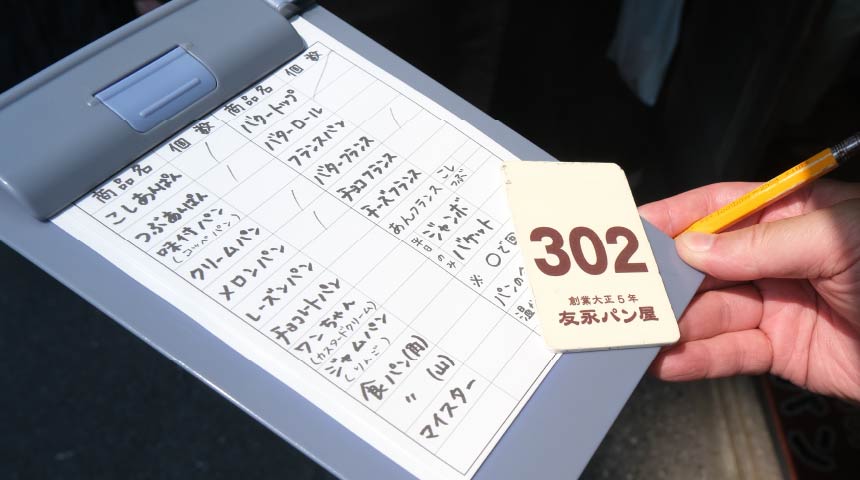 商品名 個数 商品名 個数
こしあんぱん
つぶあんぱん
味付パン
(コッペパン)
クリームパン
メロンパン
レーズンパン
チョコレートパン
ワンちゃん
(カスタードクリーム)
ジャムパン
(リンゴ)
食パン(角)
〃 (山)
マイスター
バタートップ
バターロール
フランスパン
バタフランス
チョコフランス
チーズフランス
あんフランス こし つぶ
ジャンボ
平日のみ バケット
※ ○で囲
パンの
302
創業大正5年
友永パン屋
パン